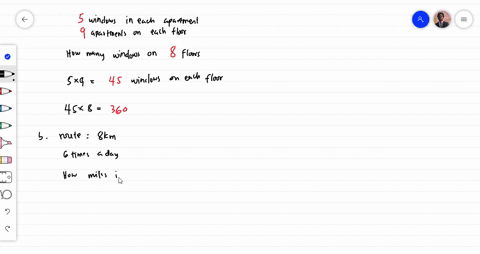 5 windows in each apartment
9 apartments on each floor
How many windows on 8 floors
5×9 = 45 windows on each floor
45×8 = 360
b. route: 8km
6 times a day
How miles i